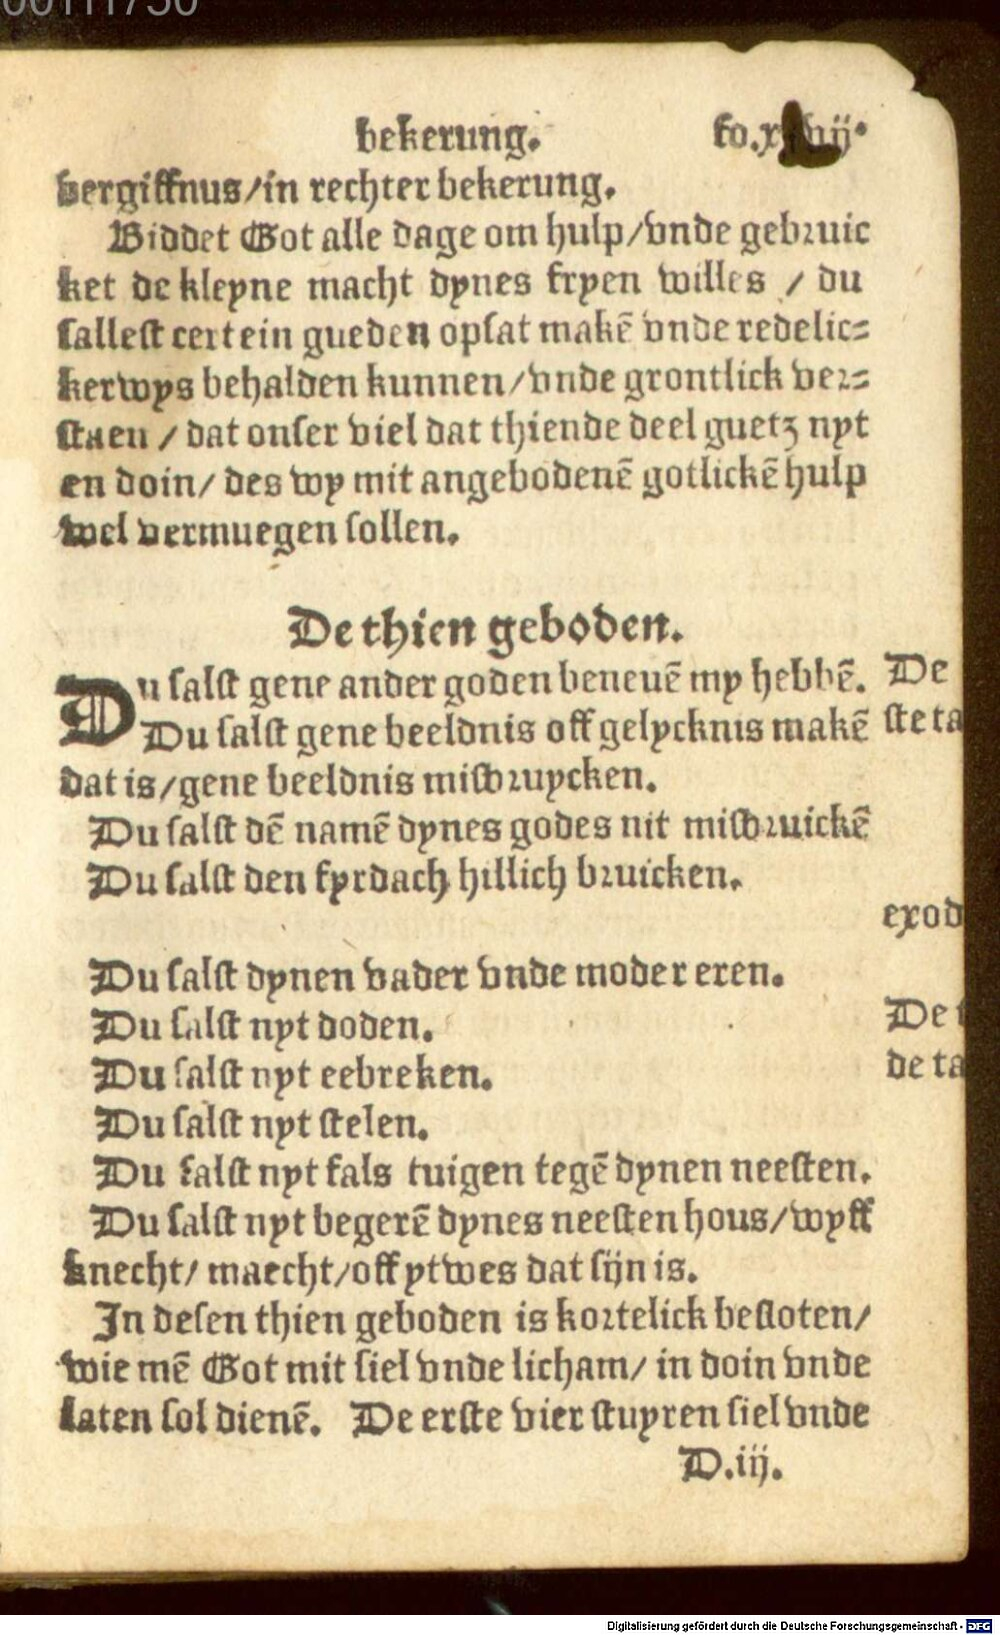 bekerung.
vergiffnus/in rechter bekerung.
Biddet Got alle dage om hulp/vnde gebruic
ket de kleyne macht dynes fryen willes / du
sallest certein gueden opsat makē vnde redelic⸗
kerwys behalden kunnen/vnde grontlick ver⸗
staen / dat onser viel dat thiende deel guetz nyt
en doin/ des wy mit angebodenē gotlickē hulp
wel vermuegen sollen.
De thien geboden.
Du salst gene ander goden beneuē my hebbē. De
Du salst gene beeldnis off gelycknis makē ste ta
dat is/gene beeldnis misbruycken.
Du salst dē namē dynes godes nit misbruickē
Du salst den fyrdach hillich bruicken.
exod
Du salst dynen vader vnde moder eren.
Du salst nyt doden. De t
Du salst nyt eebreken. de ta
Du salst nyt stelen.
Du salst nyt fals tuigen tegē dynen neesten.
Du salst nyt begerē dynes neesten hous/wyff
knecht/ maecht/off ytwes dat sijn is.
In desen thien geboden is kortelick besloten/
wie mē Got mit siel vnde licham/ in doin vnde
laten sol dienē. De erste vier stuyren siel vnde
D.iij.
Digitalisierung gefördert durch die Deutsche Forschungsgemeinschaft - DFG